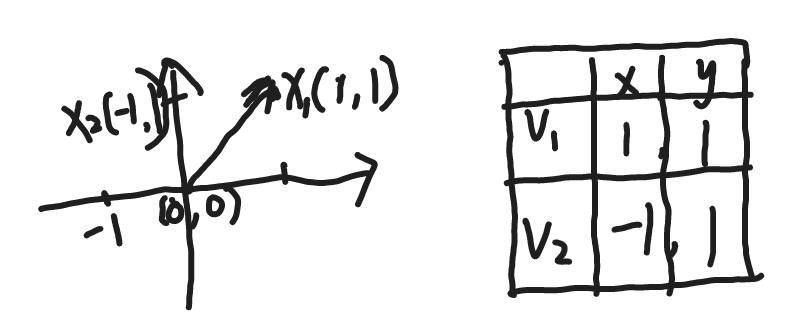 x₂(-1,1)
x₁(1,1)
-1
(0,0)
x y
V₁ 1, 1
V₂ -1, 1